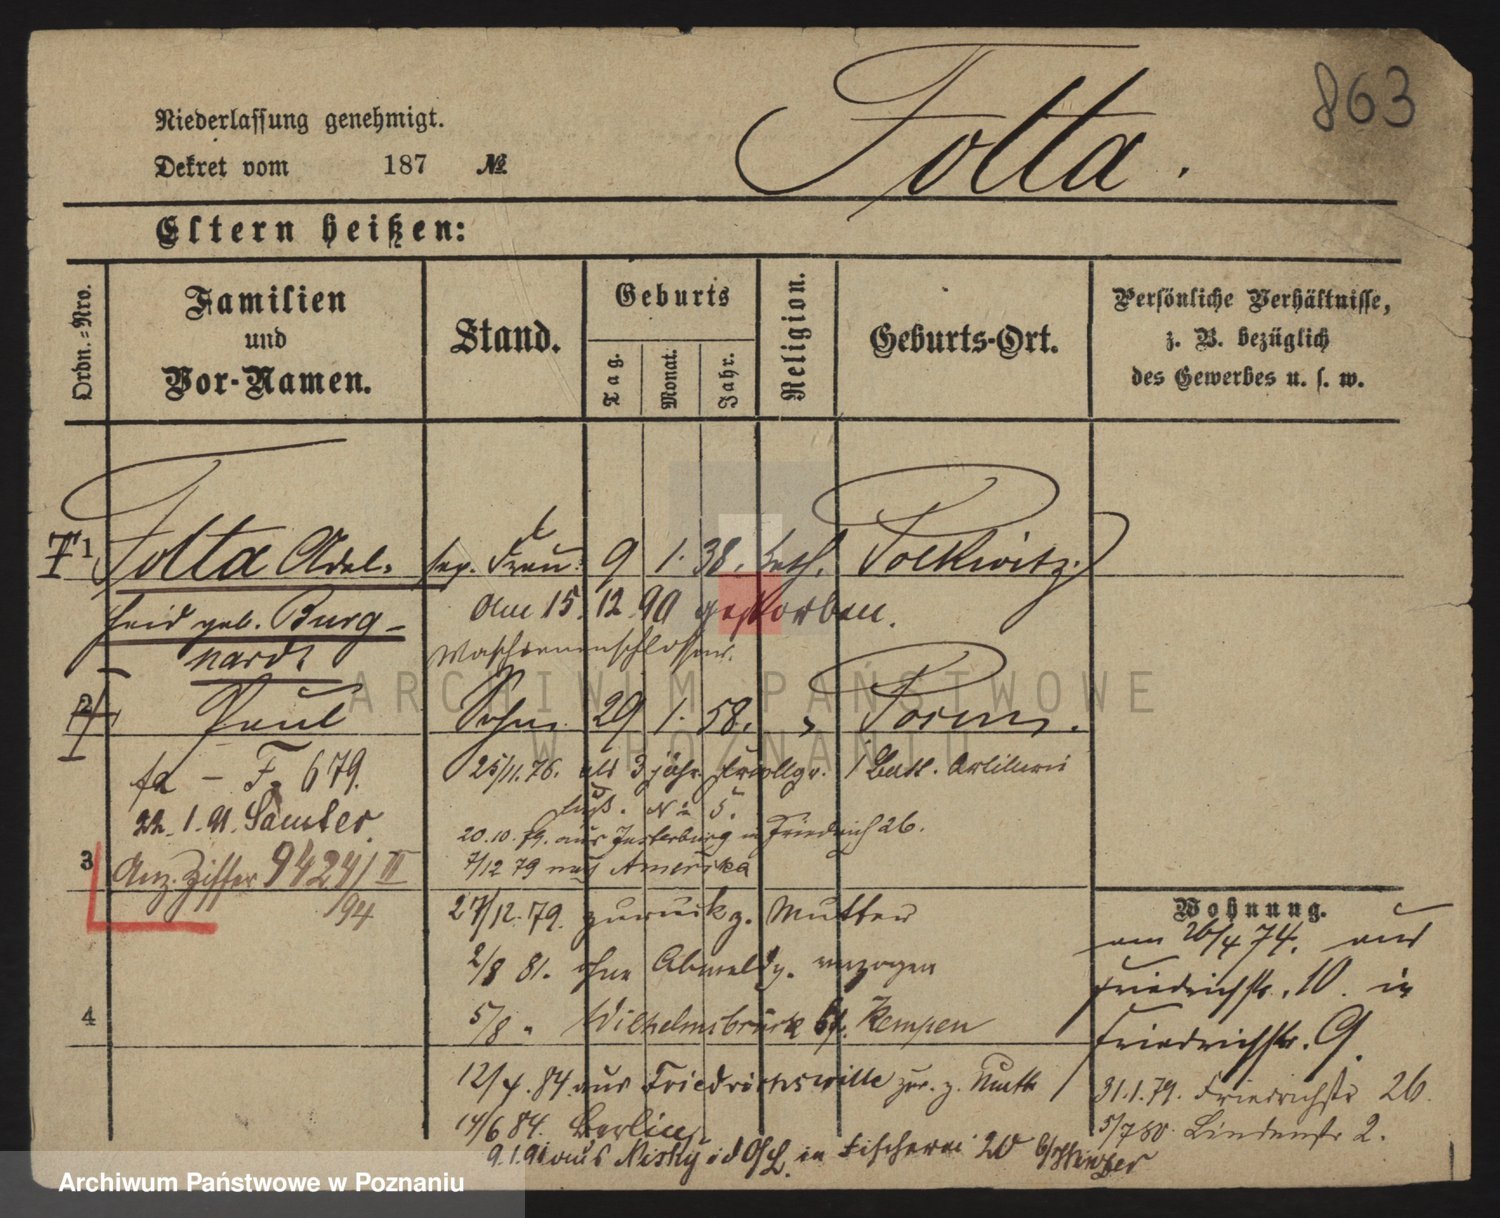 863
Niederlassung genehmigt.
Dekret vom 187 №
Folta.
Eltern heißen:
Ordn.-Nro.
Familien
und
Vor-Namen.
Stand.
Geburts
Tag.
Monat.
Jahr.
Religion.
Geburts-Ort.
Persönliche Verhältnisse,
z. B. bezüglich
des Gewerbes u. s. w.
1 Folta Adel- sep. Frau 9 1. 38. kath. Polkwitz.
heid geb. Burg- am 15. 12. 90 gestorben.
hardt Maschinenschlosser.
2 Paul Sohn 29 1. 58. " Posen.
fa - F. 679. 25/11. 76. als 3 jähr. Freiwllgr. 1 Batl. Artillerie
Fuß. № 5.
22. 1. 91. Samter 20. 10. 79. aus Insterburg in Friedrich 26.
3 Anz. Ziffer 9424/III 94
7/12 79 nach Amerika
27/12. 79. zurück z. Mutter
2/8 81. ohne Abmeldg. verzogen
4 5/8 " Wilhelmsbrück b/. Kempen
12/4. 84. aus Friedrichswille zur. z. Mutt
14/6 84. Berlin
9. 1. 91 aus Nisky i d O/L. in Fischerei 20 b/
Wohnung.
am 26/4 74. aus
Friedrichstr. 10. in
Friedrichstr. 9.
31. 1. 79. Friedrichstr 26.
5/7 80. Lindenstr 2.
ARCHIWUM PAŃSTWOWE
W POZNANIU
Archiwum Państwowe w Poznaniu